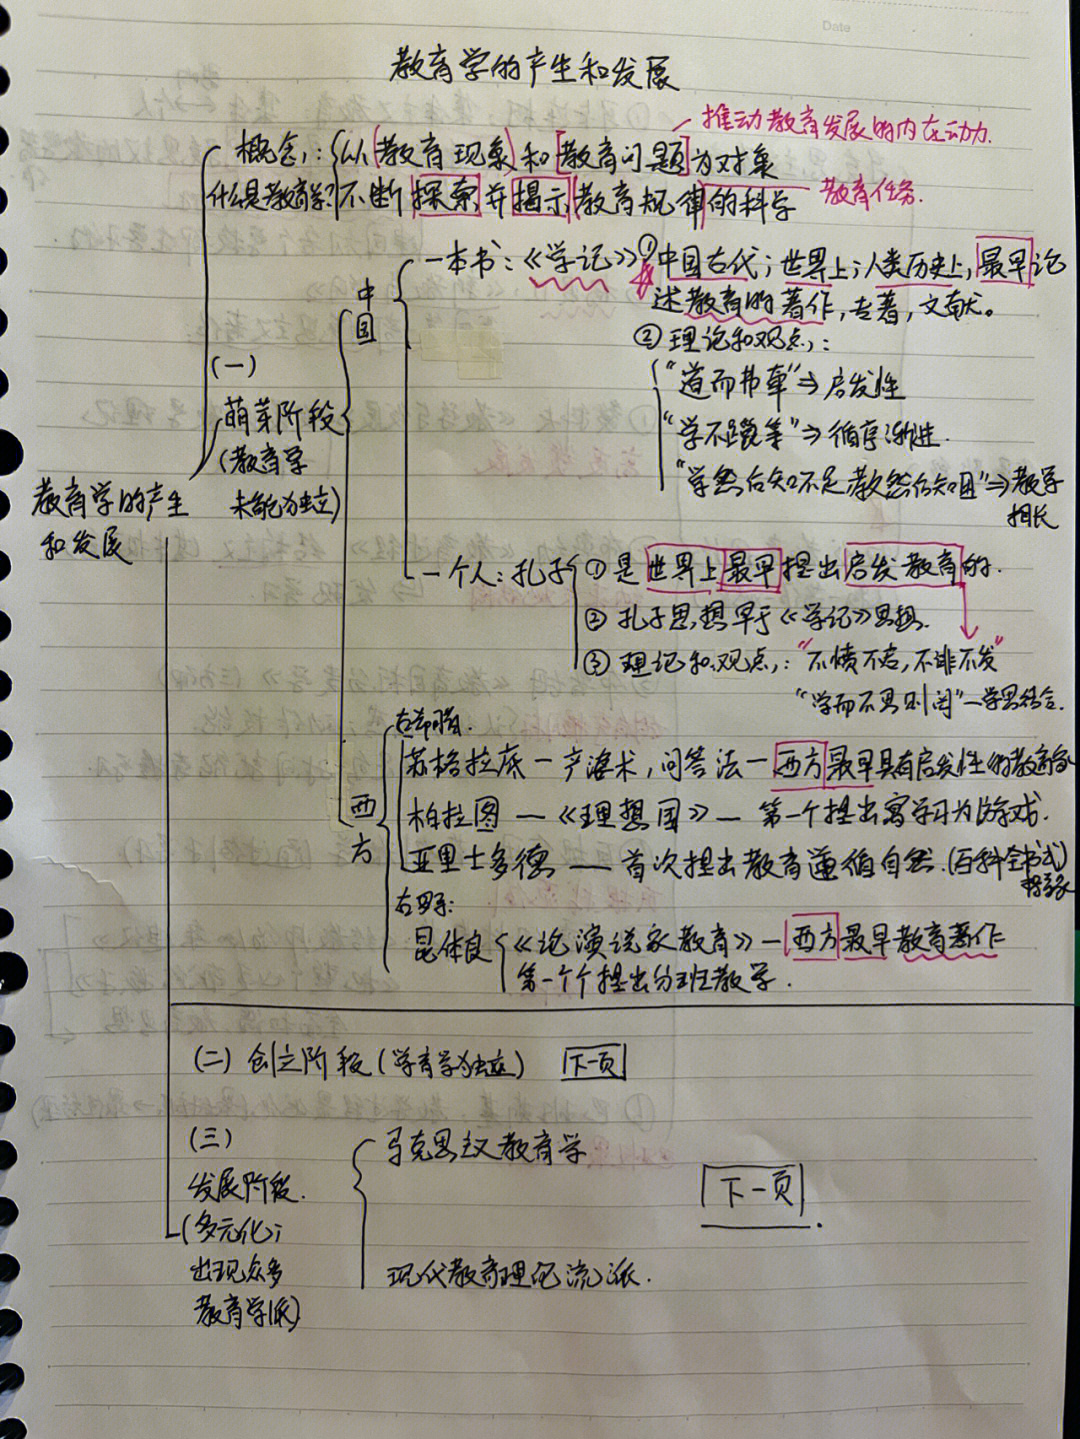 Date
教育学的产生和发展
推动教育发展的内在动力.
概念: 从教育现象和教育问题为对象
什么是教育学? 不断探索并揭示教育规律的科学
教育任务.
一本书:《学记》① 中国古代; 世界上; 人类历史上, 最早论
述教育的著作, 专著, 文献。
中国
② 理论和观点:
"道而弗牵"⇒启发性
"学不躐等"⇒循序渐进.
"学然后知不足教然后知困"⇒教学
相长
(一)
萌芽阶段
(教育学
未能为独立)
教育学的产生
和发展
一个人: 孔子 ① 是世界上最早提出启发教育的.
② 孔子思想早于《学记》思想.
③ 理记和观点: "不愤不启, 不悱不发"
"学而不思则罔"—学思结合.
古希腊.
苏格拉底—产海术, 问答法—西方最早具有启发性的教育家
西方
柏拉图—《理想国》—第一个提出寓学习为游戏.
亚里士多德——首次提出教育遵循自然. (百科全书式)
古罗马:
昆体良 《论演说家教育》—西方最早教育著作
第一个提出分班教学.
(二) 创立阶段 (学育学为独立) 下一页
(三)
发展阶段.
(多元化;
出现众多
教育学派)
马克思主义教育学
下一页.
现代教育理论流派.